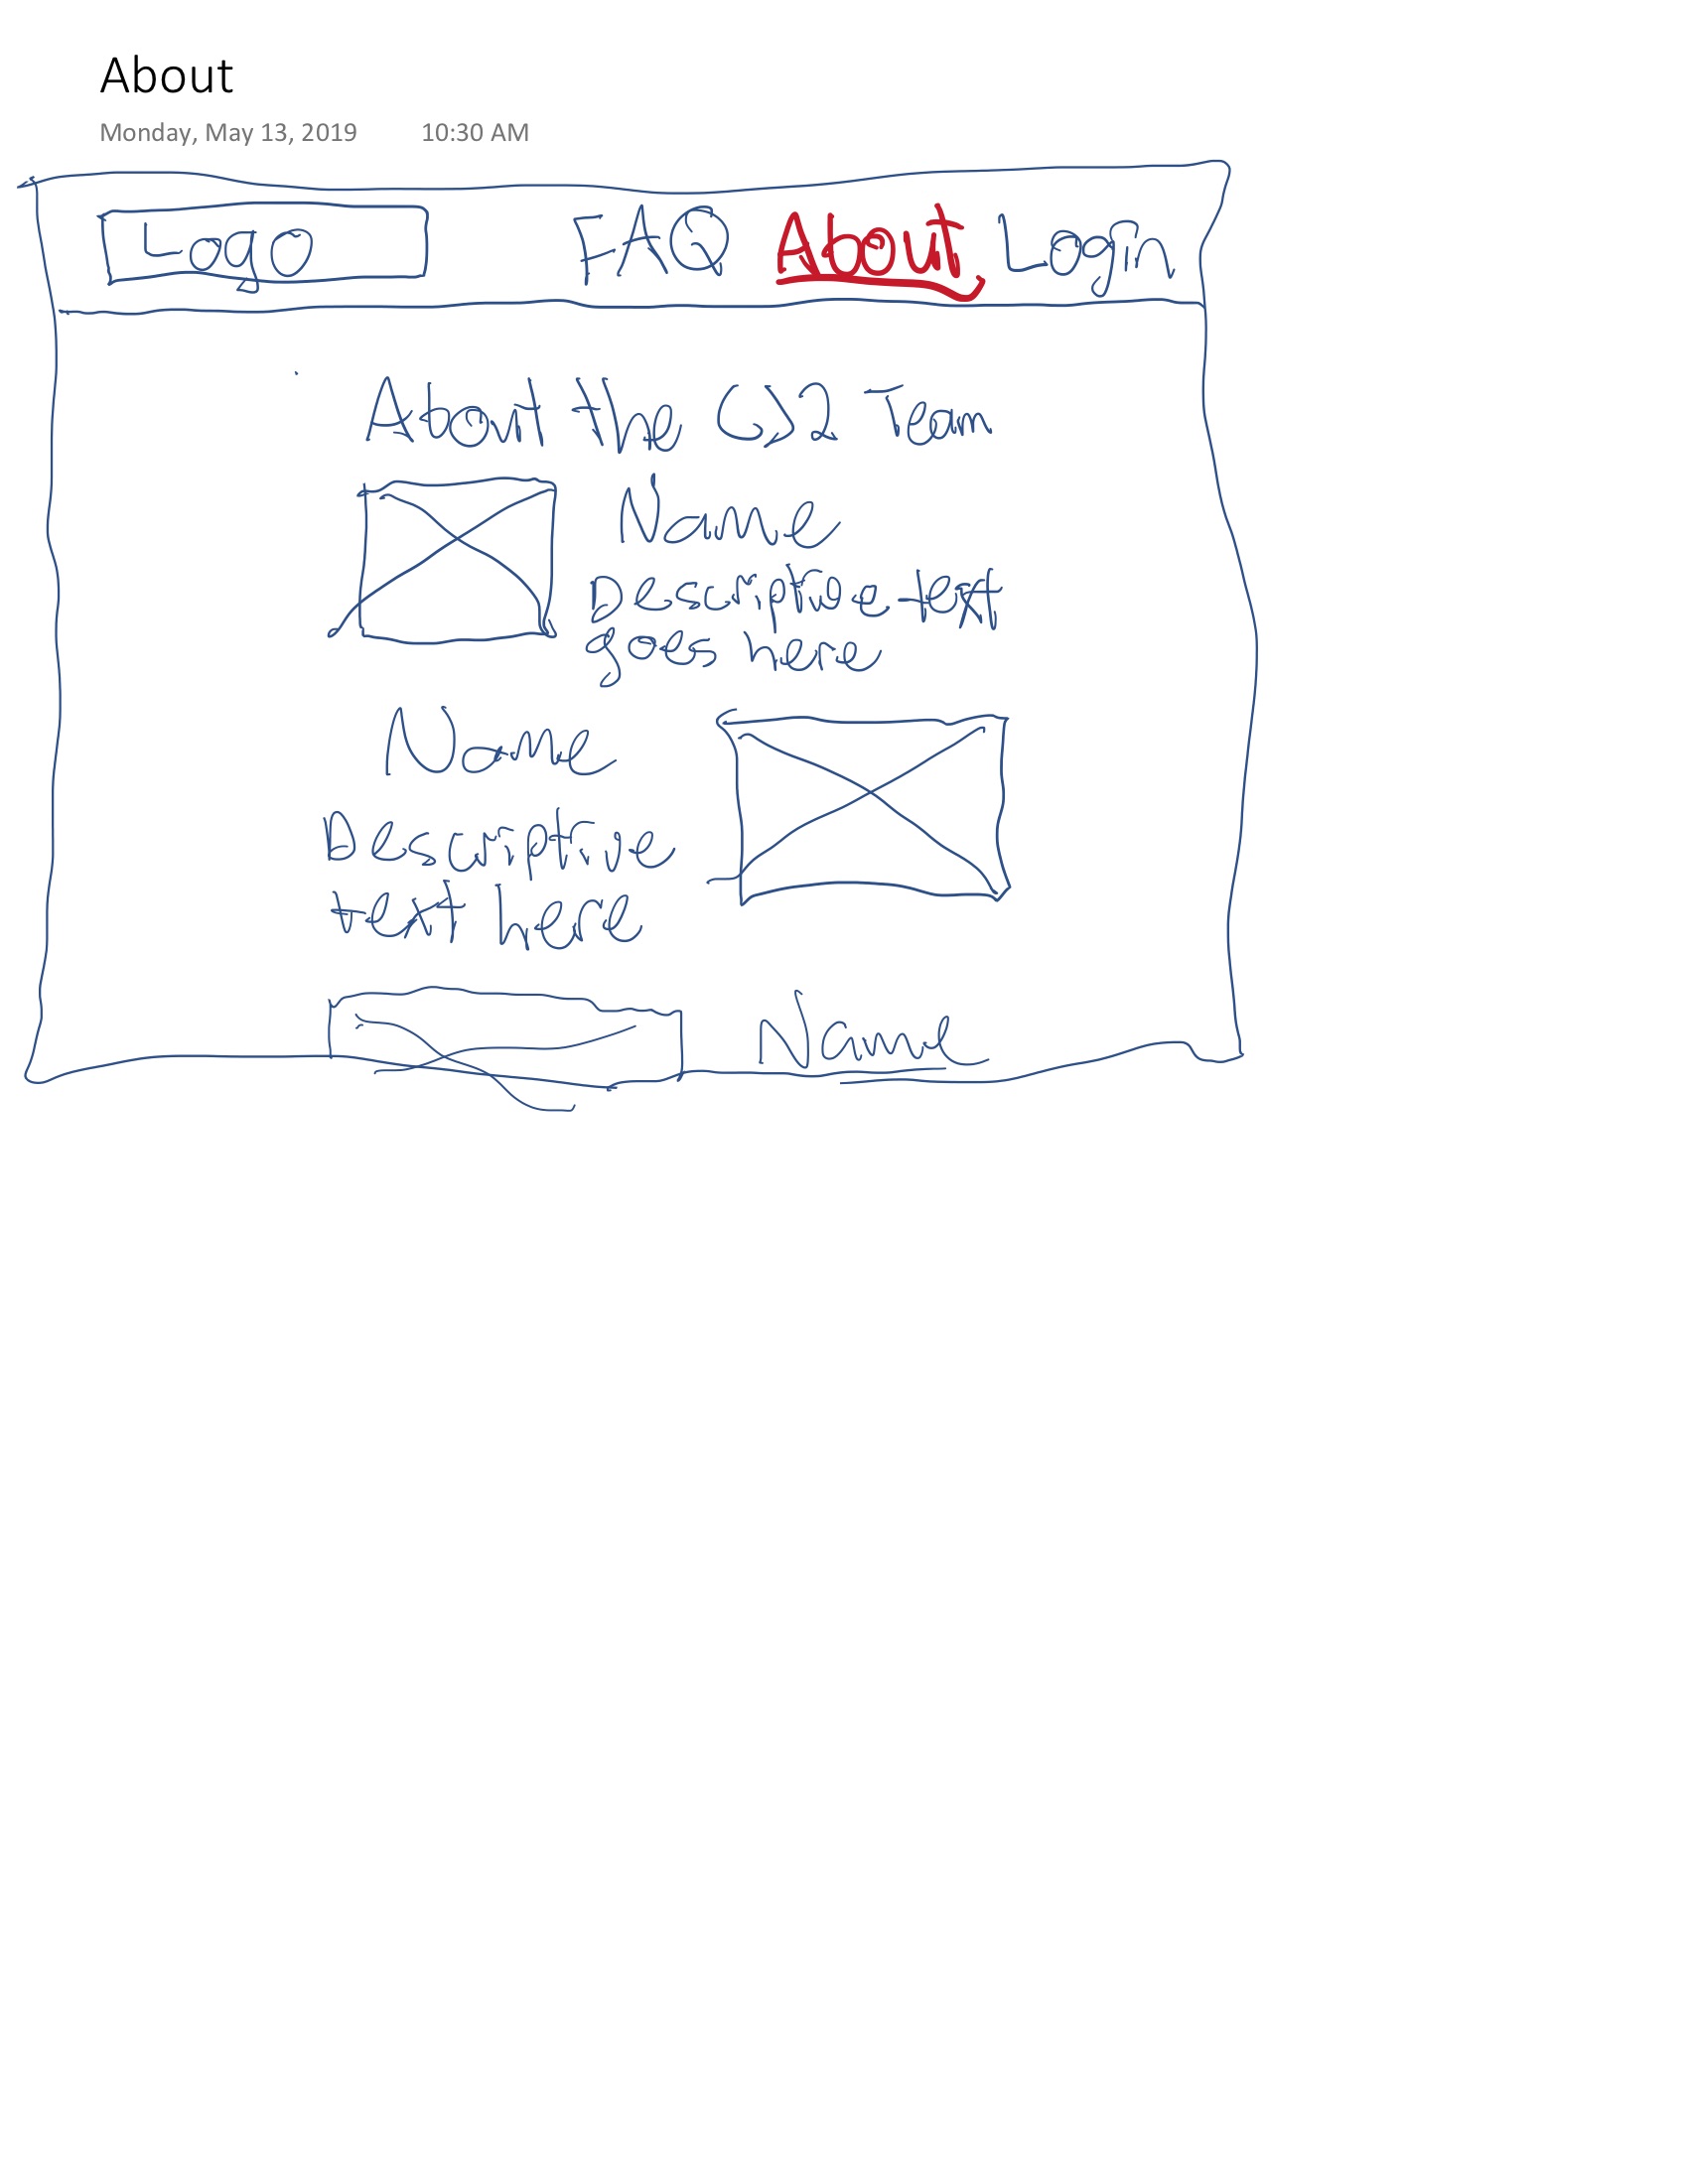 About
Monday, May 13, 2019 10:30 AM
Logo FAQ About Login
About the Team
Name
Descriptive text
goes here
Name
Descriptive
text here
Name